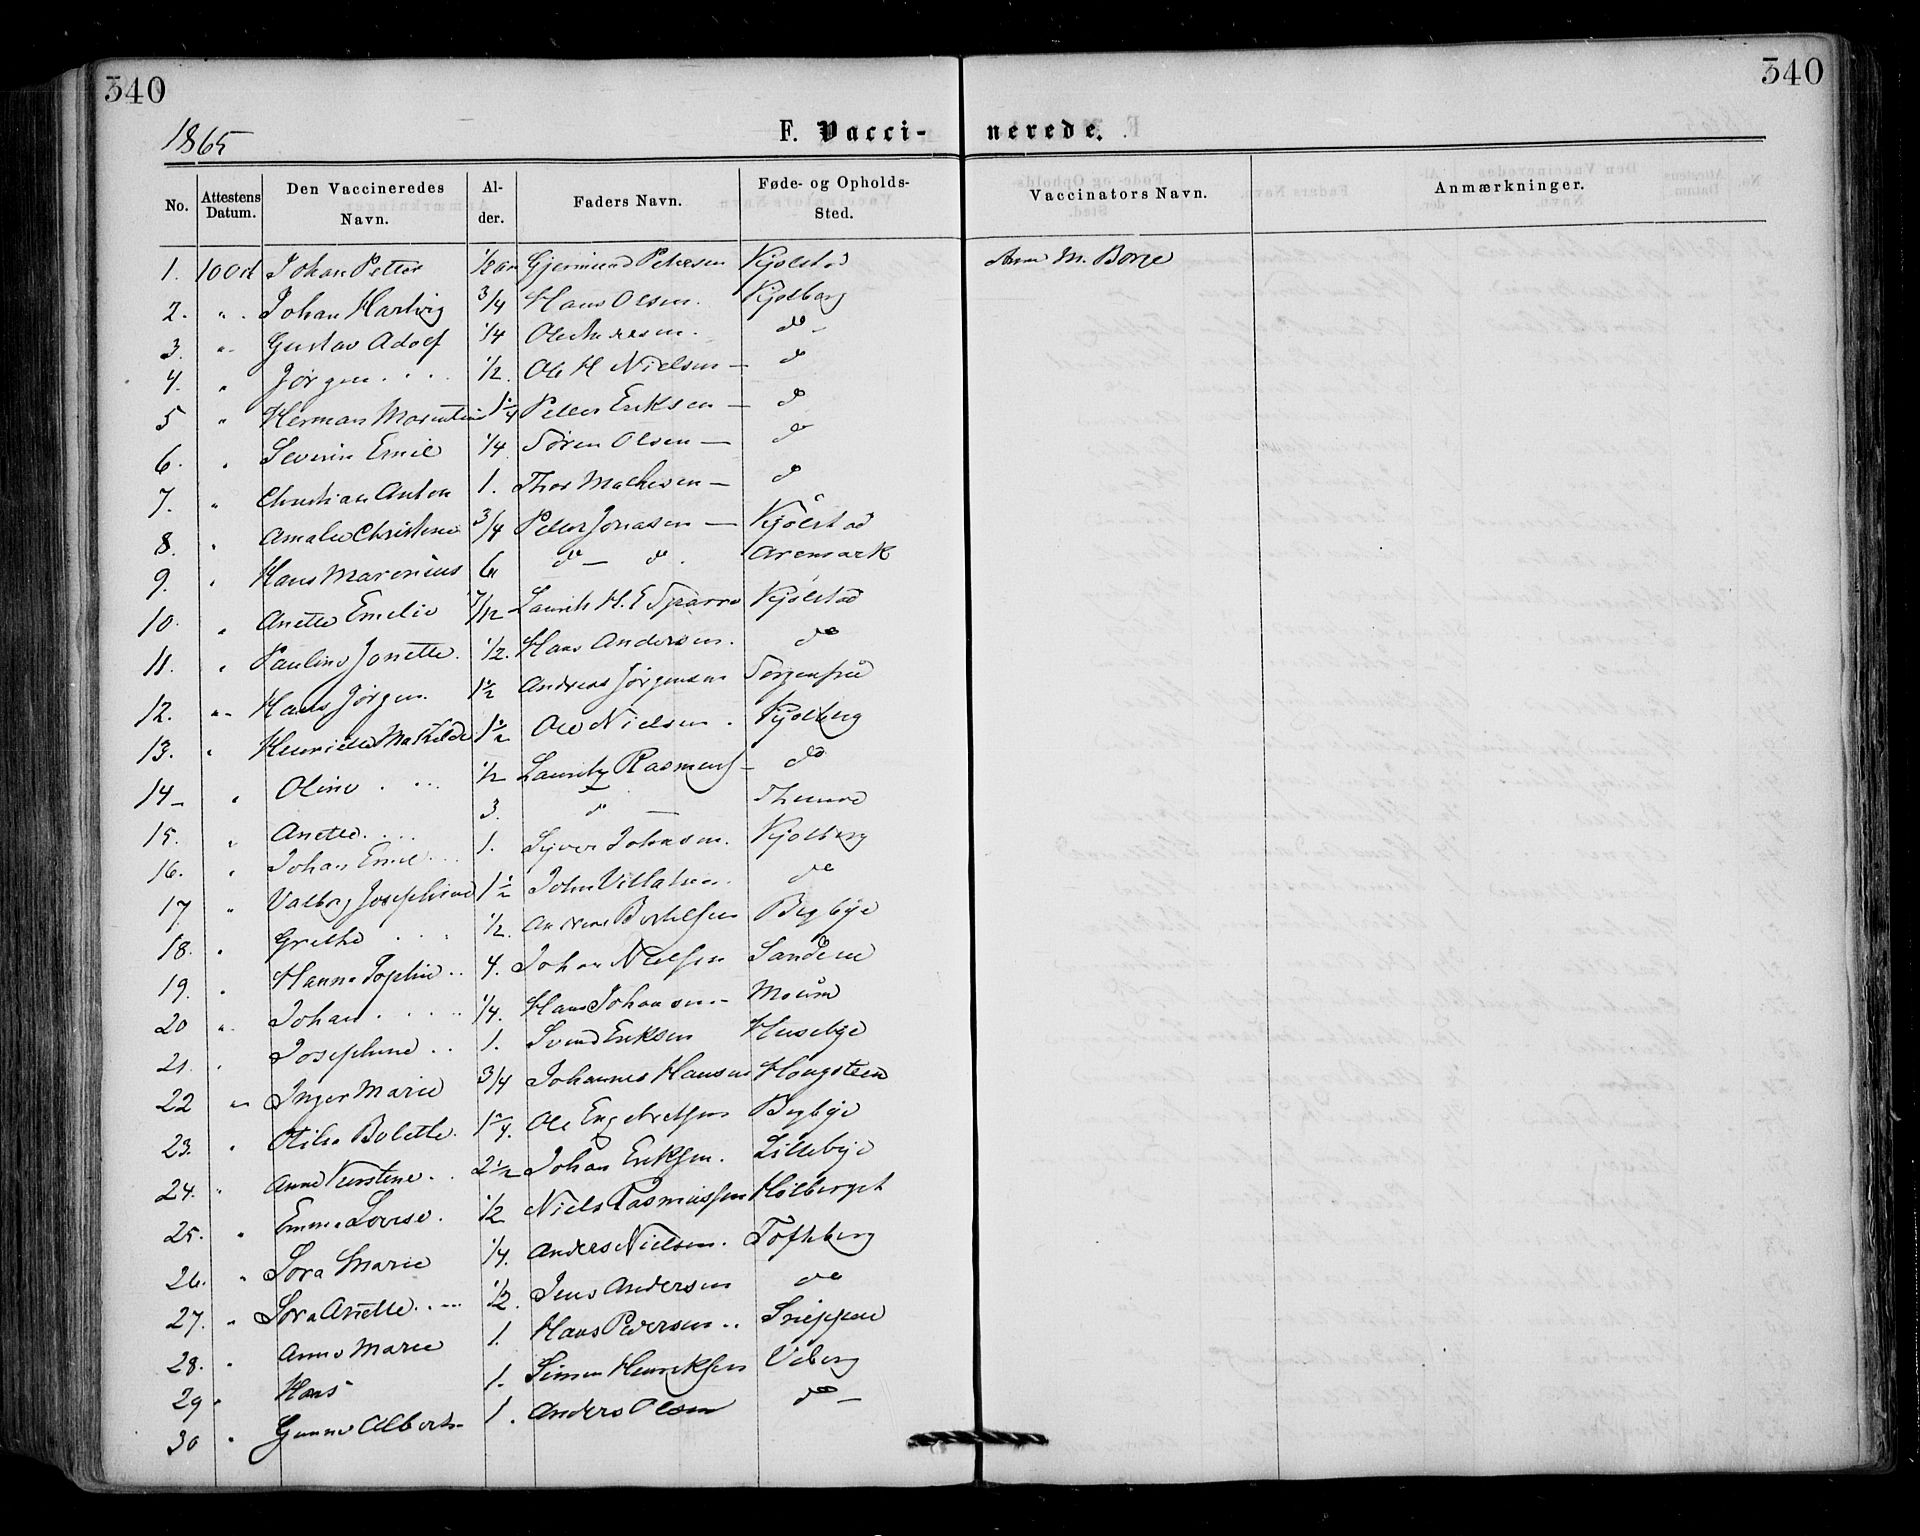 340
340
1865
F. Vacci-
nerede.
No. Attestens Datum. Den Vaccineredes Navn. Alder. Faders Navn. Føde- og Opholds-Sted. Vaccinators Navn. Anmærkninger.
1. 10 Oct Johan Petter 1/2 aar Gjermund Petersen Kjølstad Anne M. Borge
2. " Johan Hartvig 3/4 Hans Olsen. Kjolberg
3. " Gustav Adolf 1/4 Ole do
4. " Jørgen 1/2. Ole H. Nielsen do
5 " Herman 1 1/4 Petter Eriksen do
6. " Severin Emil 1/4 Søren Olsen do
7. " Christian Anton 1. Thor Mathesen do
8. " Amalie Christine 3/4 Petter Jonasen Kjølstad
9. " Hans Marinius 6 do do. Aremark
10. " Anette Emelie 7/12 Laurits H. E. Sparre Kjølstad
11. " Pauline Jonette. 1/2. Hans Andersen. do
12. " Hans Jørgen. 1 1/2 Andreas Jørgensen Sorgenfri
13. " Henriette Mathilde 1 1/2 Ole Nielsen. Kjolberg
14 " Oline 1/2 Lauritz Rasmus do
15. " Anette 3. do Thune
16. " Johan Emil 1. Syver Johansen. Kjolberg
17. " Valborg Josephine 1 1/2 John do
18. " Grethe 1/2. Andreas Bertelsen Begbye
19. " Hanna Sophie 4. Johan Nielsen Sandene
20 " Johan 1/4. Hans Johansen Moum
21. " Josephine 1. Svend Eriksen Husebye
22 " Inger Marie 3/4 Johannes Hansen Hougsteen
23. " Otilia Bolette. 1 1/4. Ole Engebretsen Begbye
24. " Anne Kirstine. 2 1/2 Johan Eriksen. Lillebye
25. " Emma Lovise. 1/2 Niels Rasmussen Holberget
26. " Lora Marie 1/4. Anders Nielsen. Tofteberg
27. " Lora Anette 1/2. Jens Andersen do
28. " Anne Marie 1. Hans Pedersen Snippen
29 " Hans 1. Simen Henriksen Veberg
30 " Alberth 1. Anders Olsen do